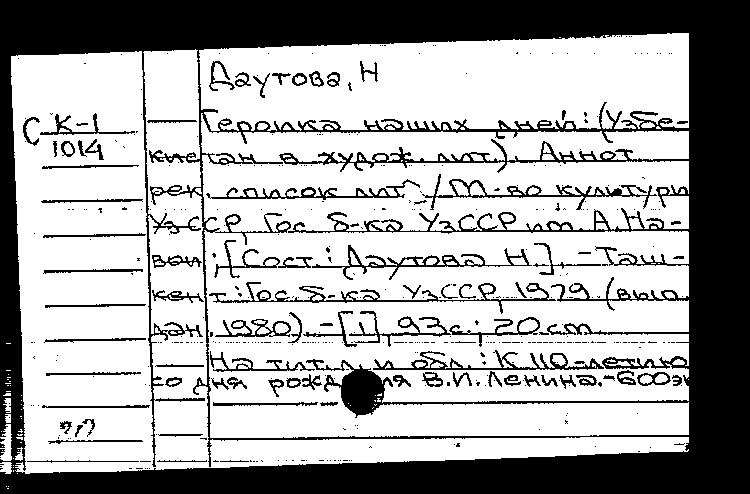 Даутова, Н
С К-1
1014
Героика наших дней: (Узбе-
кистан в худож. лит.). Аннот.
рек. список лит. / М-во культуры
УзССР, Гос. б-ка УзССР им. А. На-
вои; [Сост.: Даутова Н.]. - Таш-
кент: Гос. б-ка УзССР, 1979 (вып.
дан. 1980). - [1], 93 с.; 20 см
На тит. л. и обл.: К 110-летию
со дня рождения В.И. Ленина. - 600 эк